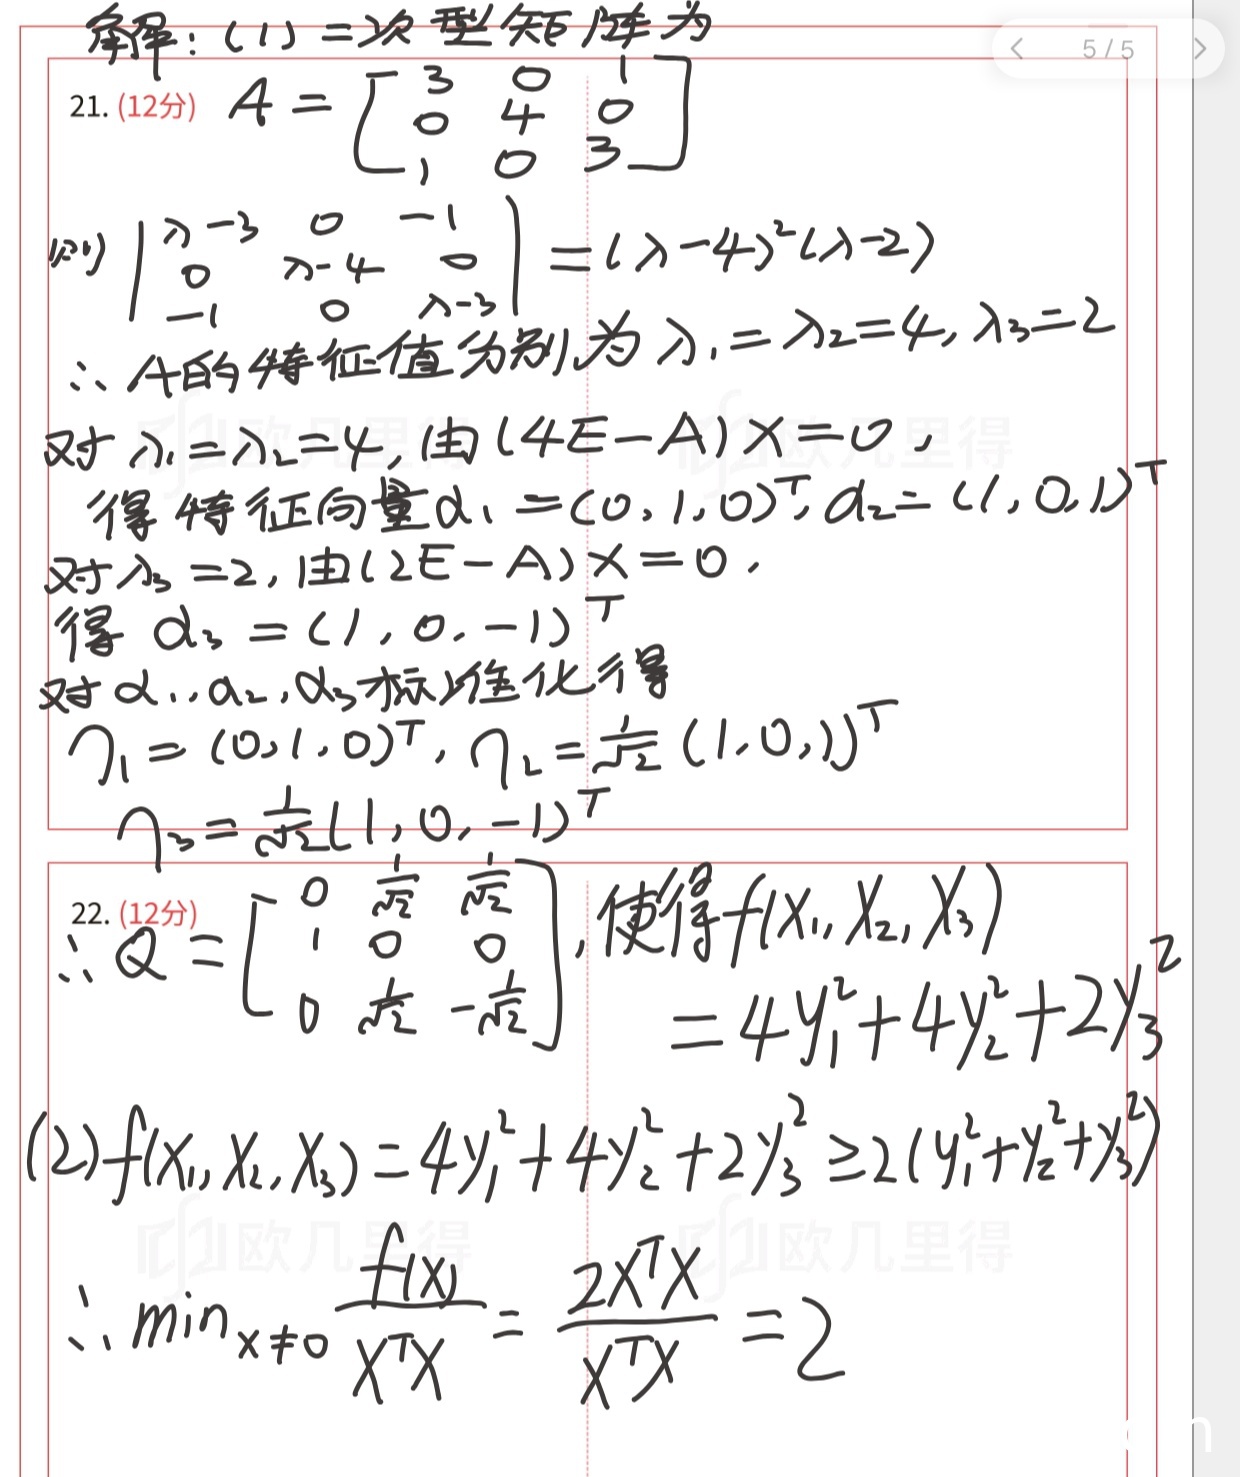 解: (1) 二次型矩阵为
5 / 5
21. (12分) A = [3 0 1
0 4 0
1 0 3]
则 |λ-3 0 -1
0 λ-4 0
-1 0 λ-3| = (λ-4)²(λ-2)
∴ A的特征值分别为 λ₁=λ₂=4, λ₃=2
对 λ₁=λ₂=4, 由(4E-A)X=0,
得特征向量α₁=(0,1,0)ᵀ, α₂=(1,0,1)ᵀ
对λ₃=2, 由(2E-A)X=0,
得 α₃=(1,0,-1)ᵀ
对α₁,α₂,α₃标准化得
η₁=(0,1,0)ᵀ, η₂=1/√2 (1,0,1)ᵀ
η₃=1/√2 (1,0,-1)ᵀ
22. (12分)
∴ Q = [0 1/√2 1/√2
1 0 0
0 1/√2 -1/√2], 使得f(X₁,X₂,X₃)
=4y₁²+4y₂²+2y₃²
(2) f(X₁,X₂,X₃)=4y₁²+4y₂²+2y₃²≥2(y₁²+y₂²+y₃²)
∴ min x≠0 f(X)/XᵀX = 2XᵀX/XᵀX = 2
欧几里得
欧几里得
欧几里得
欧几里得